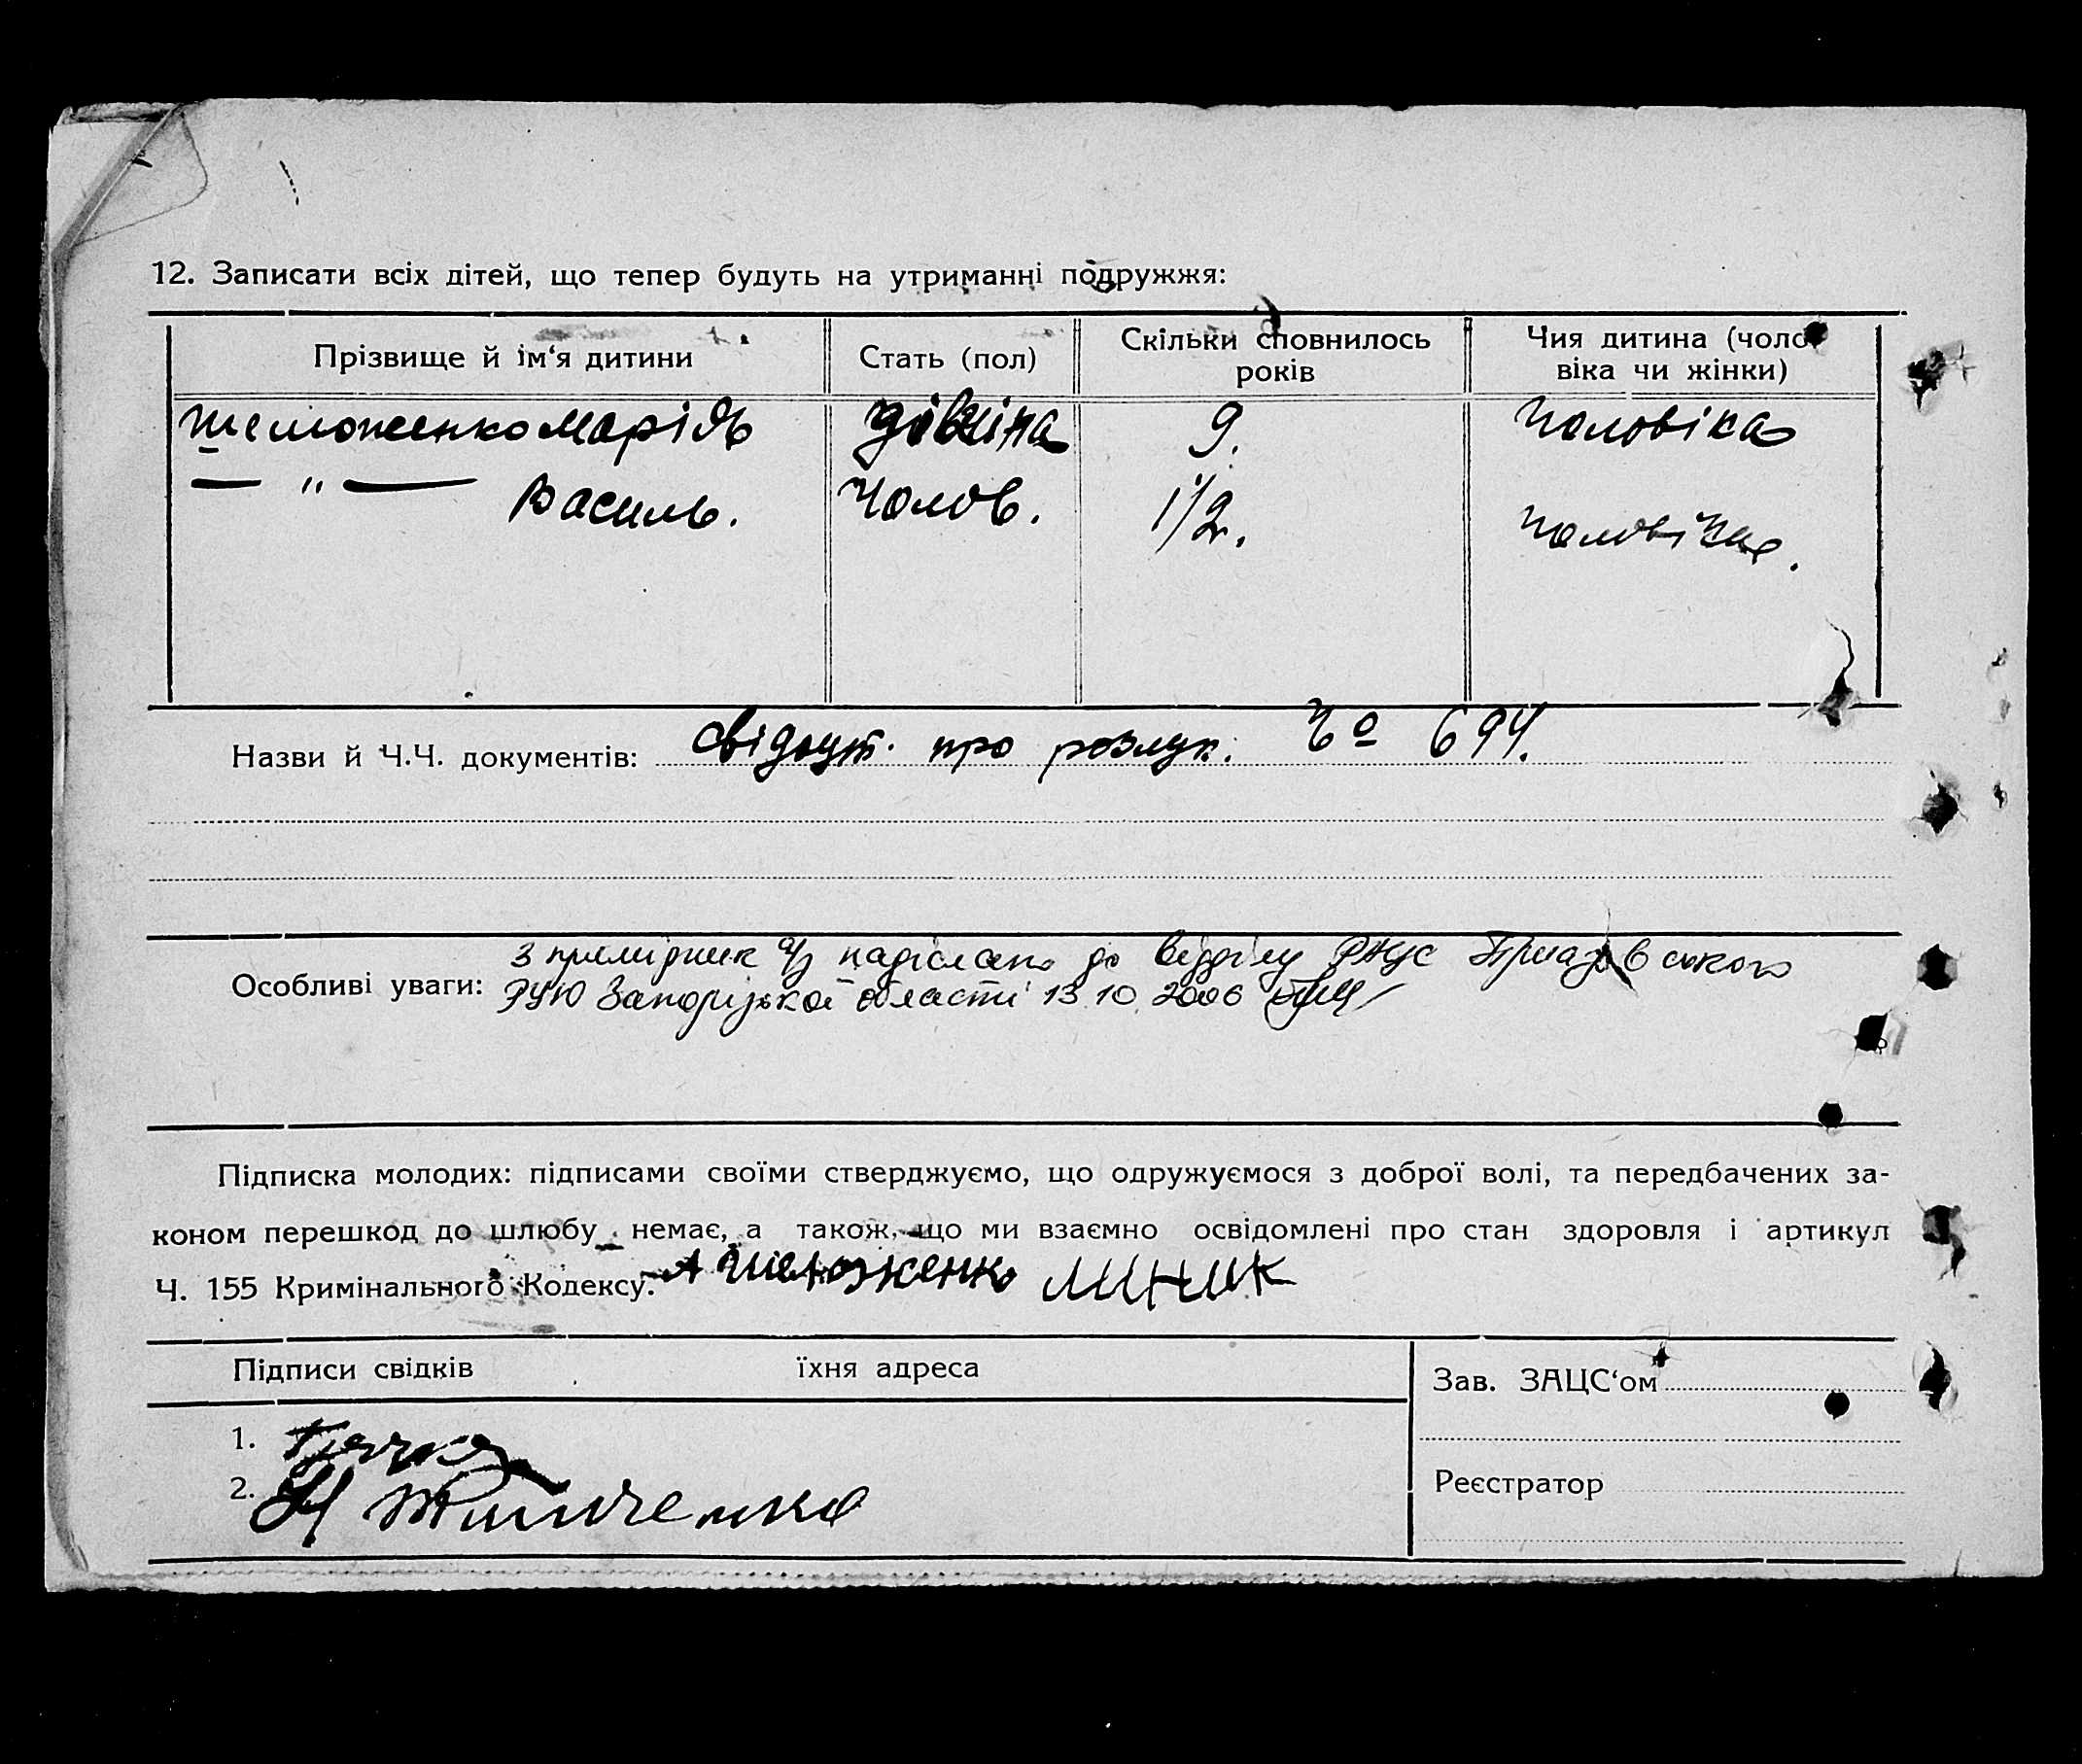 12. Записати всіх дітей, що тепер будуть на утриманні подружжя:
Прізвище й ім‘я дитини Стать (пол) Скільки сповнилось років Чия дитина (чоло віка чи жінки)
Марія 9. чоловіка
— „ — Василь. чолов. 1/2. чоловіка.
Назви й Ч.Ч. документів: свідоцт. про розлук. 694.
Особливі уваги: надіслано до відділу Приазовського
РУЮ Запорізької області 13.10.2006
Підписка молодих: підписами своїми стверджуємо, що одружуємося з доброї волі, та передбачених за-
коном перешкод до шлюбу немає, а також, що ми взаємно освідомлені про стан здоровля і артикул
Ч. 155 Кримінального Кодексу. линик
Підписи свідків їхня адреса
Зав. ЗАЦС‘ом
1.
2.
Реєстратор